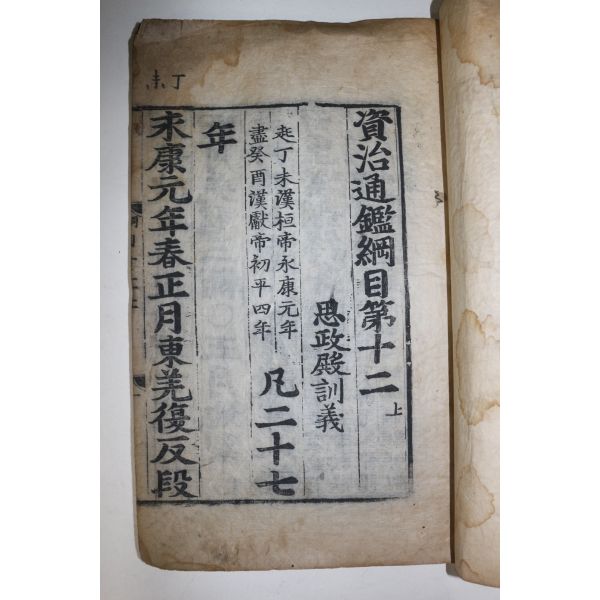 資治通鑑綱目第十二 上
思政殿訓義
起丁未漢桓帝永康元年
盡癸酉漢獻帝初平四年
凡二十七
年
丁未
未康元年春正月東羌復反段